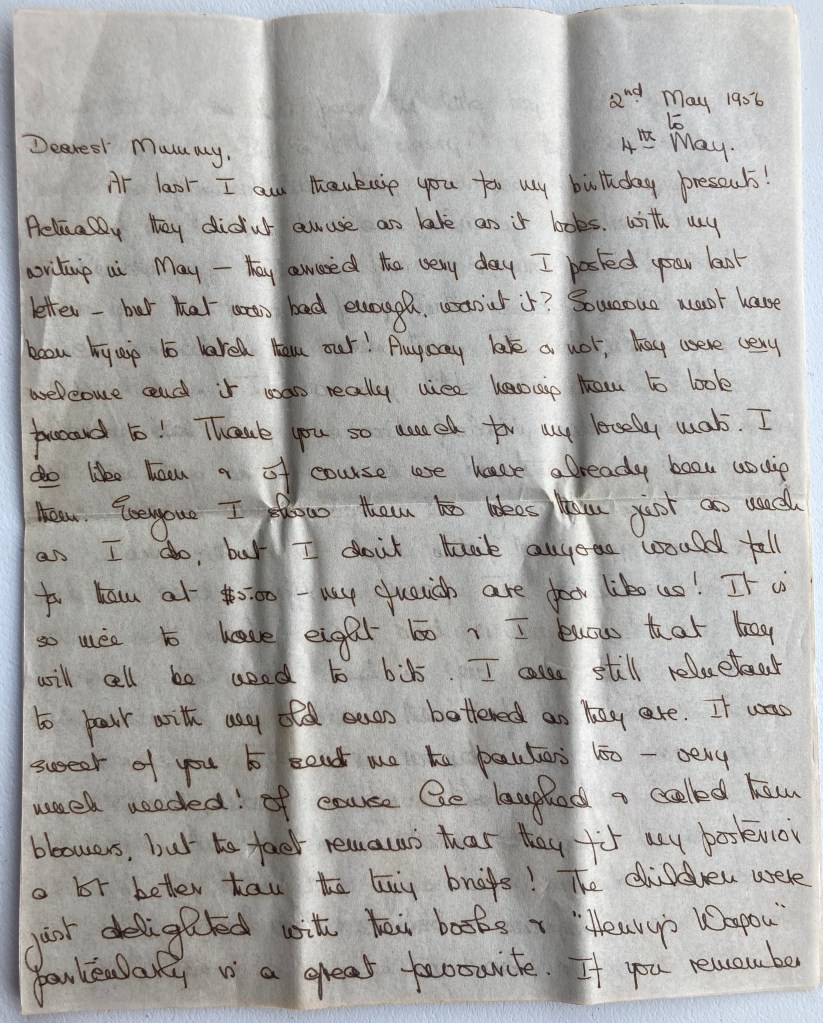 2nd May 1956
to
4th May.
Dearest Mummy,
At last I am thanking you for my birthday presents!
Actually they didn't arrive as late as it looks. with my
writing in May – they arrived the very day I posted your last
letter – but that was bad enough, wasn't it? Someone must have
been trying to hatch them out! Anyway late or not, they were very
welcome and it was really nice having them to look
forward to! Thank you so much for my lovely mats. I
do like them & of course we have already been using
them. Everyone I show them to likes them just as much
as I do, but I don't think anyone would fall
for them at $5.00 – my friends are poor like us! It is
so nice to have eight too & I know that they
will all be used to bits. I am still reluctant
to part with my old ones battered as they are. It was
sweet of you to send me the panties too – very
much needed! Of course laughed & called them
bloomers, but the fact remains that they fit my posterior
a lot better than the tiny briefs! The children were
just delighted with their books & "Henry's Wagon"
particularly is a great favourite. If you remember